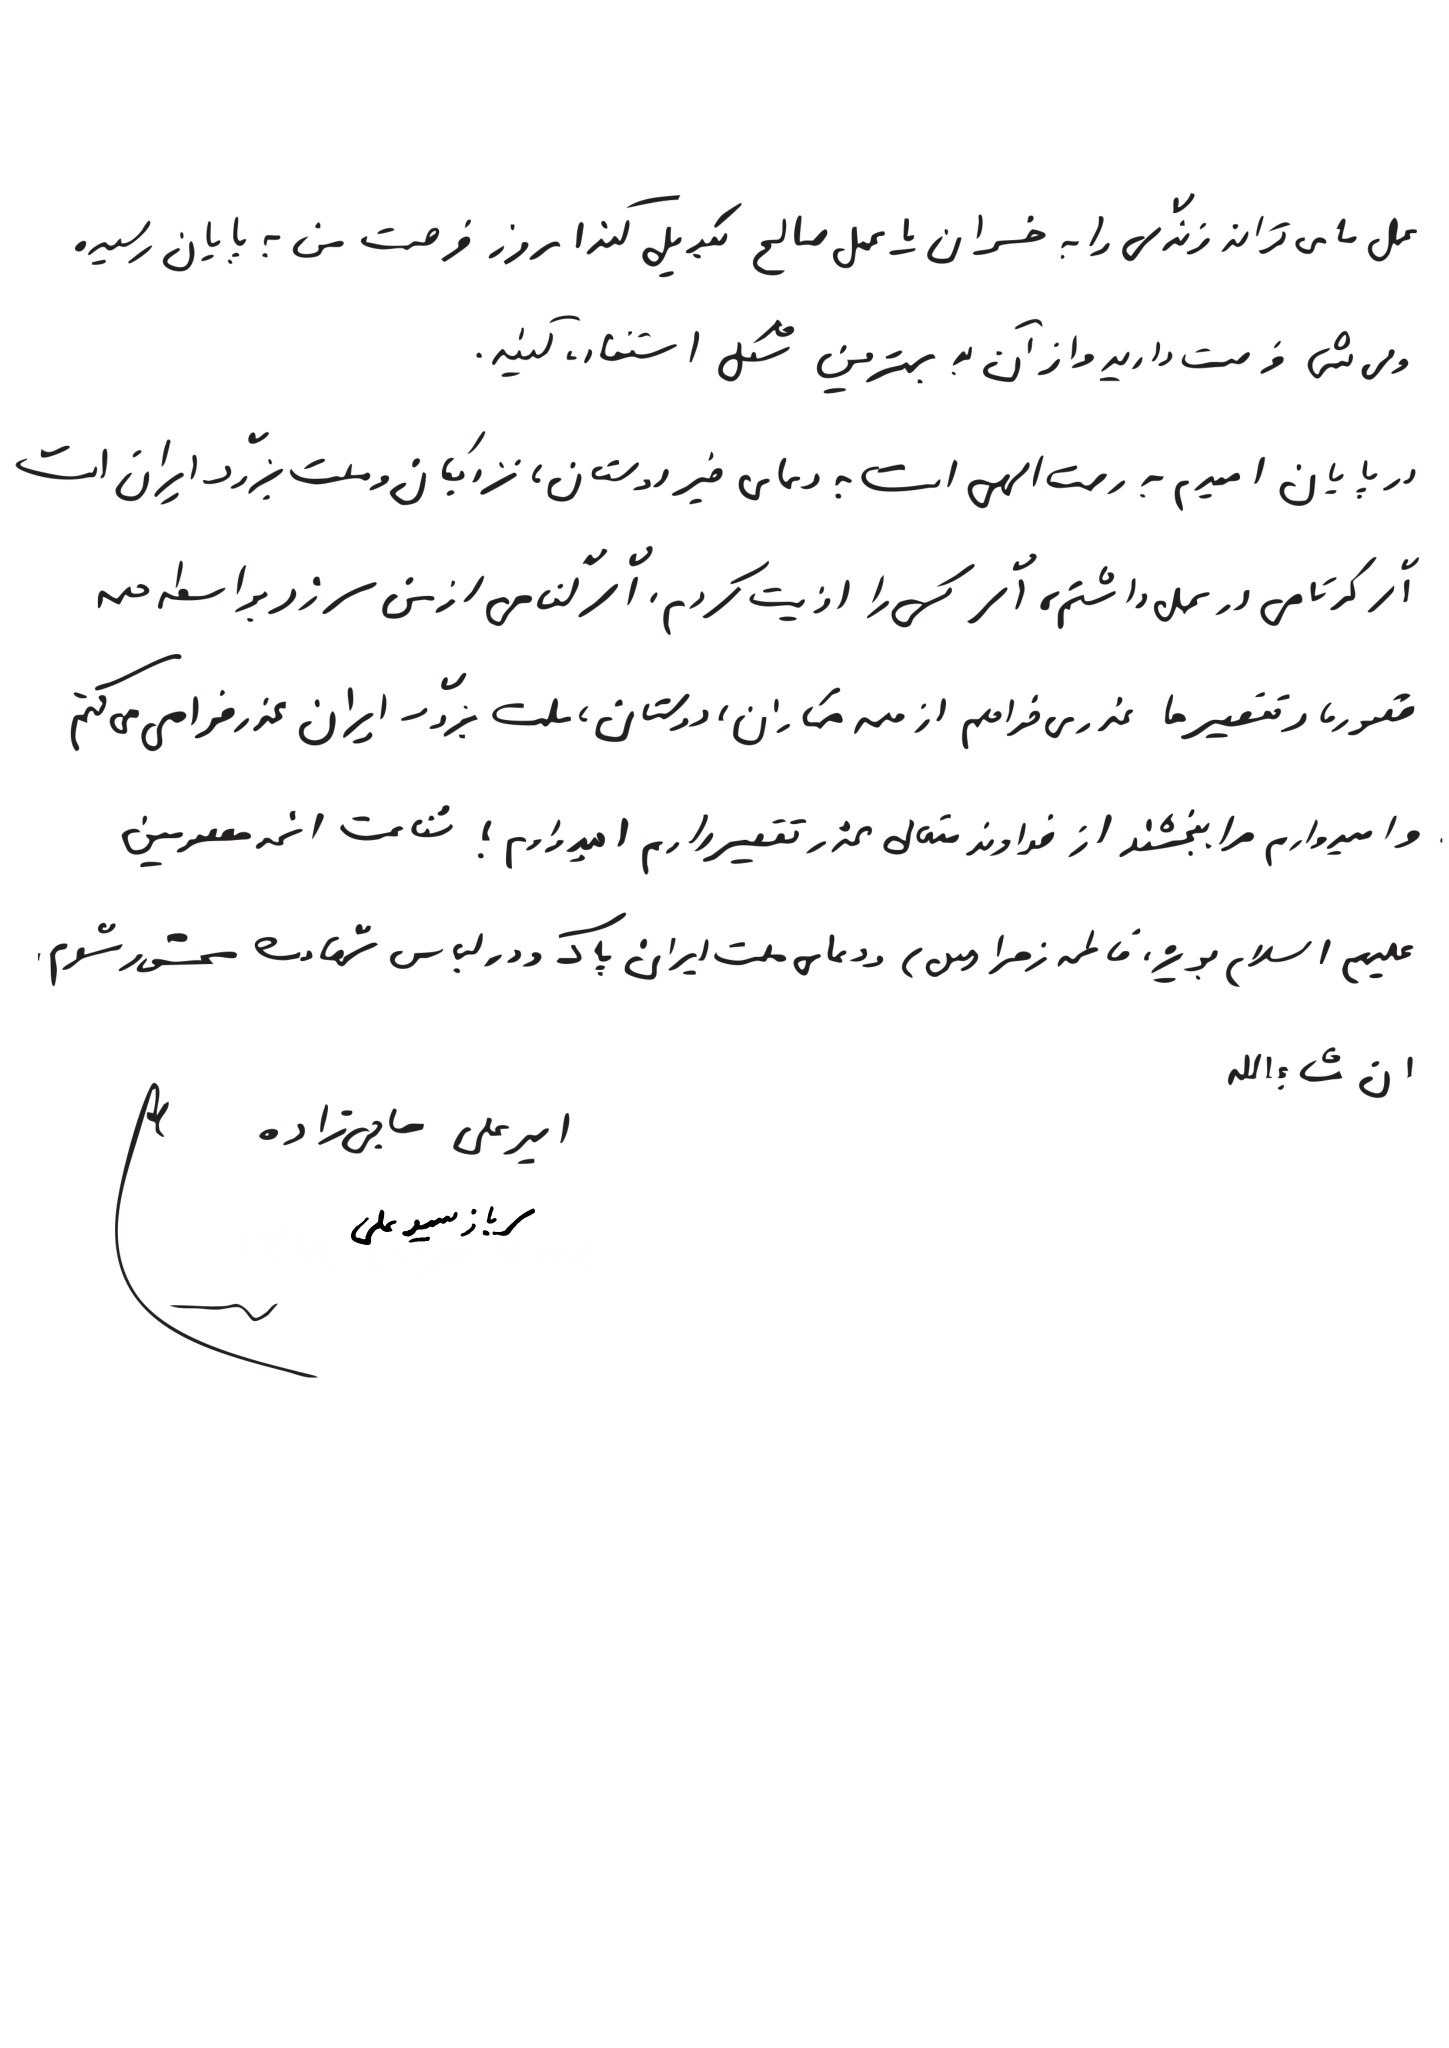 عمل ما می تواند زندگی را به خسران یا عمل صالح تبدیل کند امروز فرصت من به پایان رسیده
ولی شما فرصت دارید و از آن به بهترین شکل استفاده کنید.
در پایان امیدم به رحمت الهی است به دعای خیر دوستان، نزدیکان و ملت بزرگ ایران است
اگر کوتاهی در عمل داشتم، اگر کسی را اذیت کردم، اگر گناهی از من سر زد بواسطه همه
قصورها و تقصیرها عذر می خواهم از همه همکاران، دوستان، ملت بزرگ ایران عذرخواهی می کنم
و امیدوارم مرا ببخشند از خداوند متعال عذر تقصیر دارم امیدوارم با شفاعت ائمه معصومین
علیهم السلام بویژه، فاطمه زهرا (س) و دعای ملت ایران پاک و در لباس شهادت محشور شوم.
ان شاءالله
امیرعلی حاجی‌زاده
سرباز سید علی